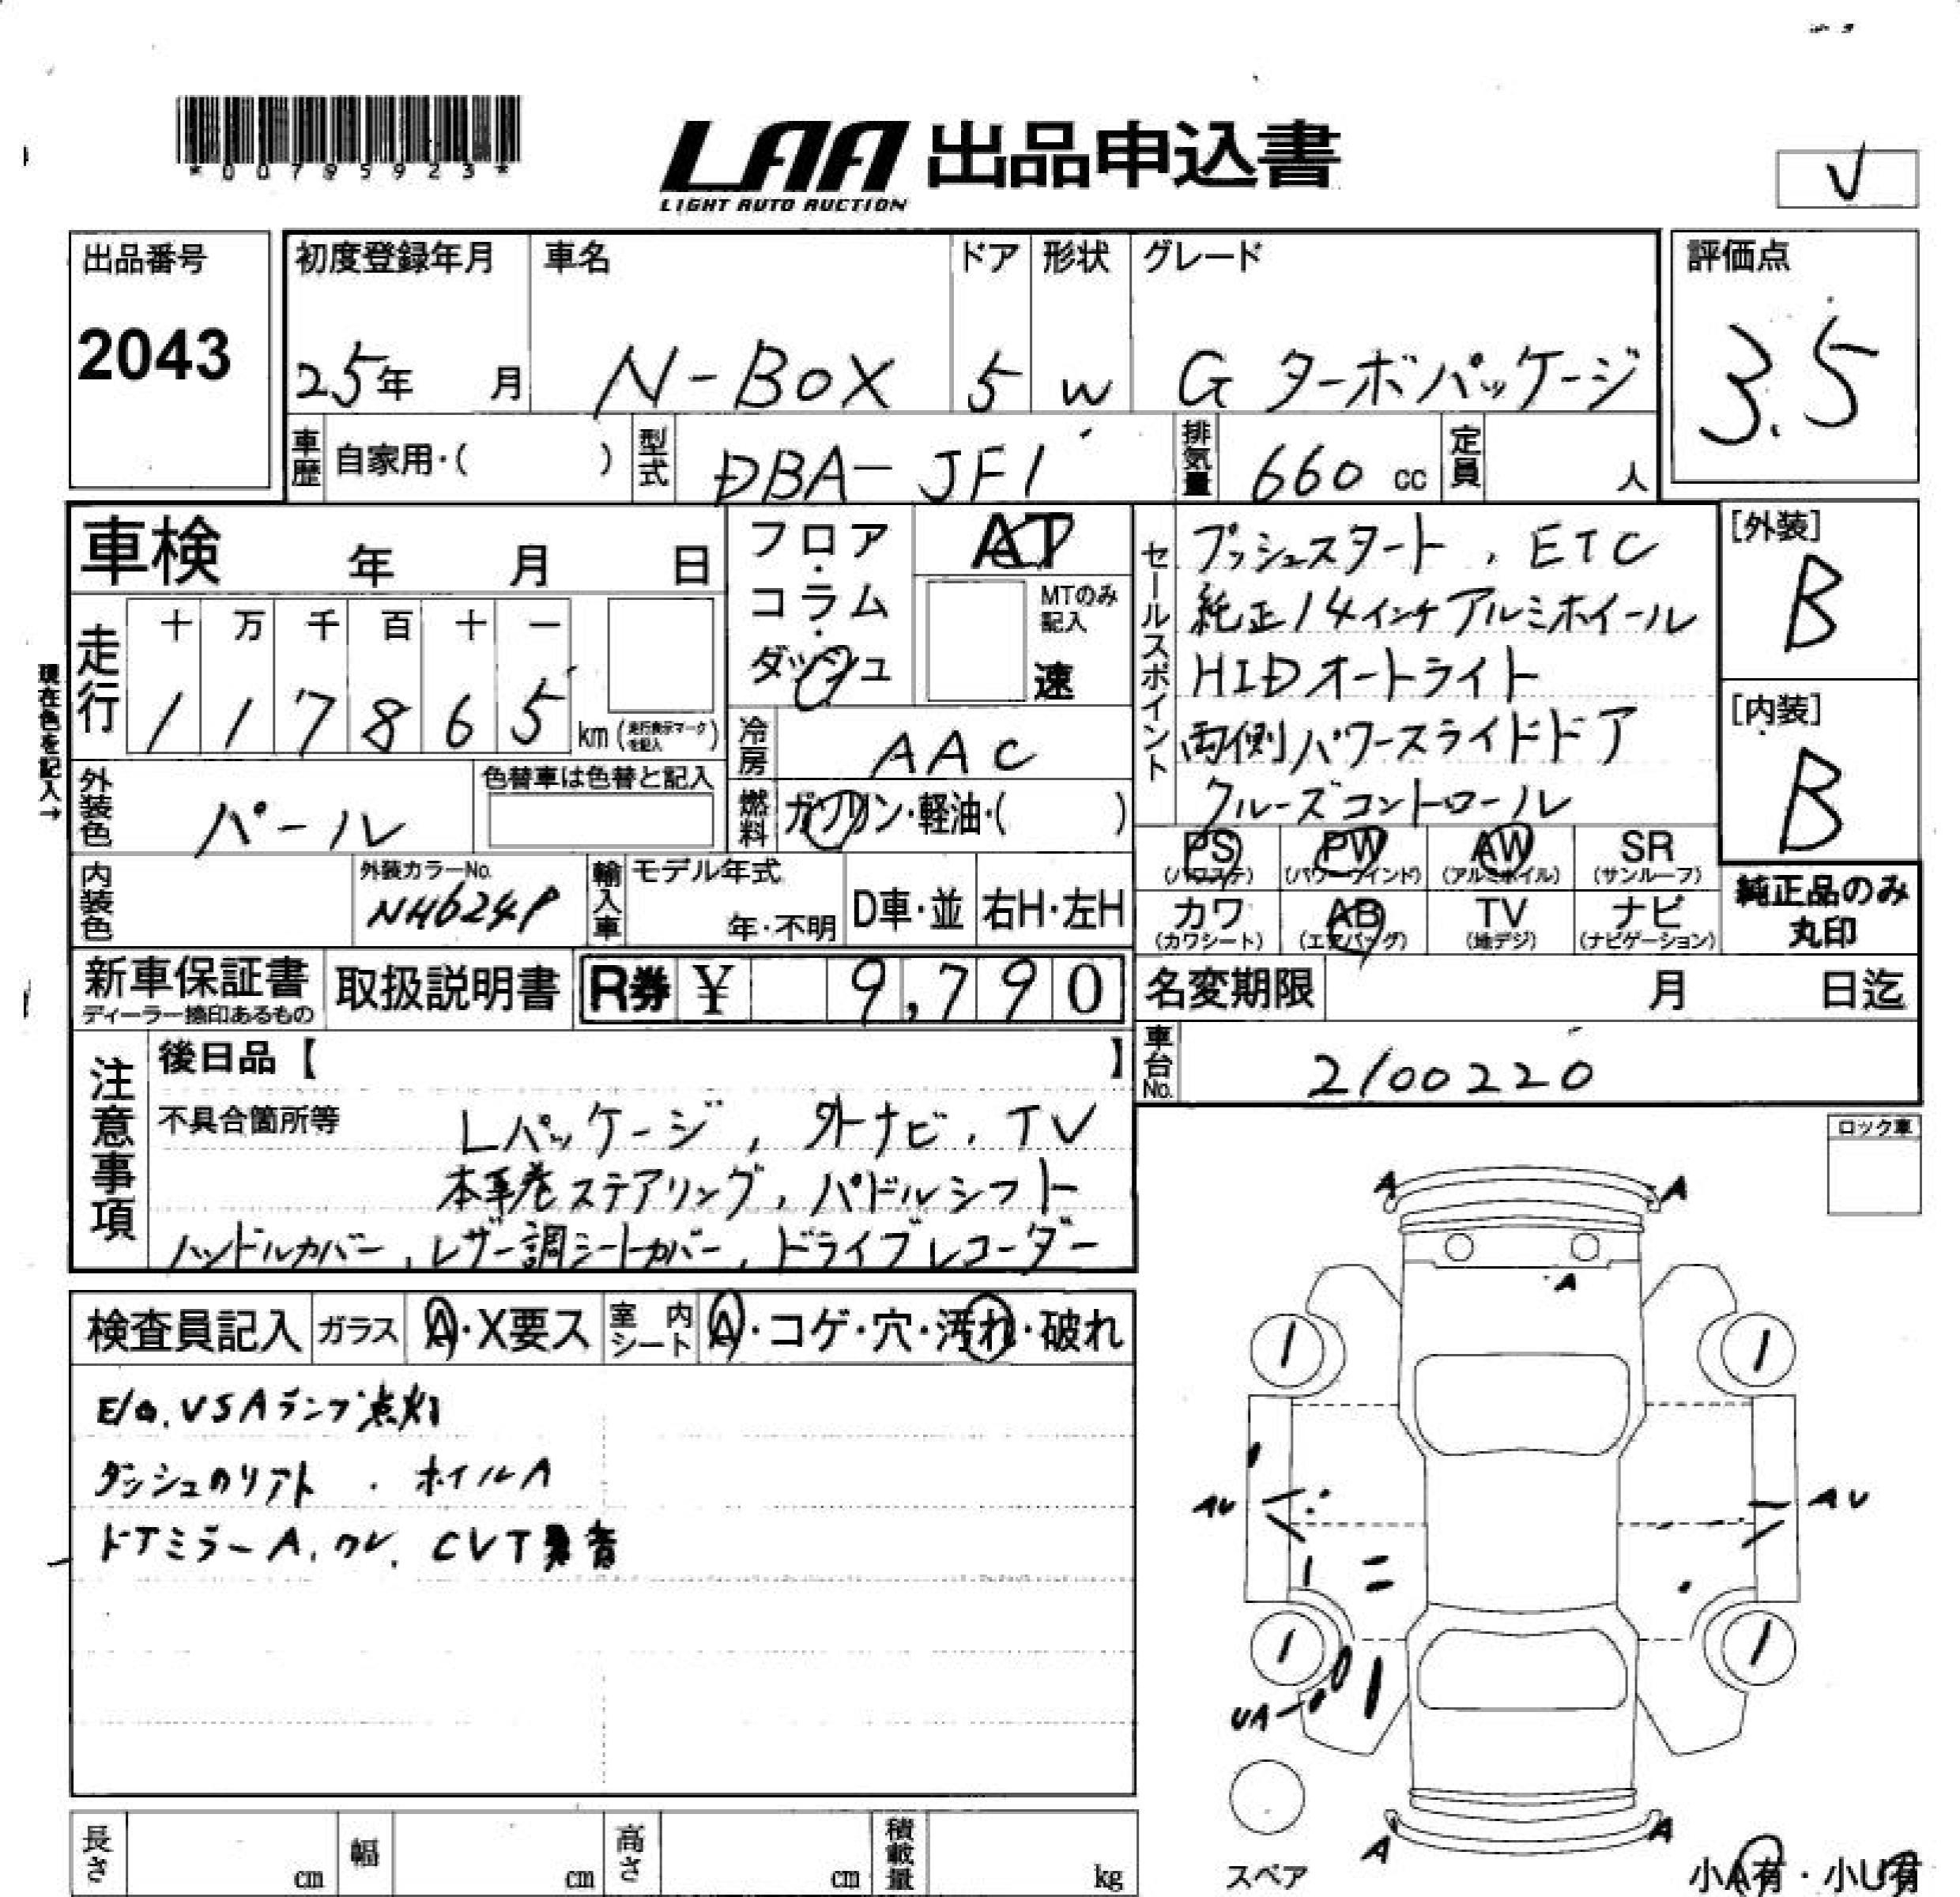 *00795923*
LAA 出品申込書
LIGHT AUTO AUCTION
出品番号
2043
初度登録年月
25年 月
車名
N-BOX
ドア
5
形状
W
グレード
G ターボパッケージ
評価点
3.5
車歴 自家用・( )
型式 DBA-JF1
排気量 660 cc
定員 人
車検 年 月 日
現在色を記入→
走行
十 万 千 百 十 一
1 1 7 8 6 5 km (走行表示マークを記入)
フロア・コラム・ダッシュ
AT
MTのみ記入
速
冷房 AAC
燃料 ガソリン・軽油・( )
外装色 パール
色替車は色替と記入
内装色
外装カラーNo.
NH624P
輸入車
モデル年式
年・不明
D車・並
右H・左H
セールスポイント
プッシュスタート, ETC
純正14インチアルミホイール
HIDオートライト
両側パワースライドドア
クルーズコントロール
[外装]
B
[内装]
B
PS (パワステ)
PW (パワーウインド)
AW (アルミホイル)
SR (サンルーフ)
カワ (カワシート)
AB (エアバッグ)
TV (地デジ)
ナビ (ナビゲーション)
純正品のみ丸印
新車保証書
ディーラー捺印あるもの
取扱説明書
R券 ¥ 9,790
名変期限 月 日迄
車台No. 2100220
注意事項
後日品【 】
不具合箇所等
Lパッケージ, 外ナビ, TV
本革巻ステアリング, パドルシフト
ハンドルカバー, レザー調シートカバー, ドライブレコーダー
ロック車
検査員記入
ガラス A・X要ス
室内シート A・コゲ・穴・汚れ・破れ
E/G, VSAランプ点灯
ダッシュノリアト . ホイルA
ドアミラーA, ワレ, CVT異音
A A
A
AU AU
UA
A A
スペア
小A有・小U有
長さ cm
幅 cm
高さ cm
積載量 kg